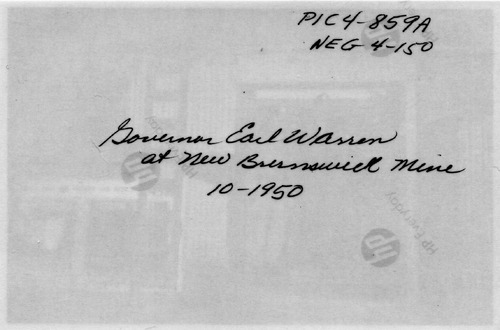 PIC 4-859A
NEG 4-150
Governor Earl Warren
at New Brunswick Mine
10-1950
hp
hp
HP Everyday